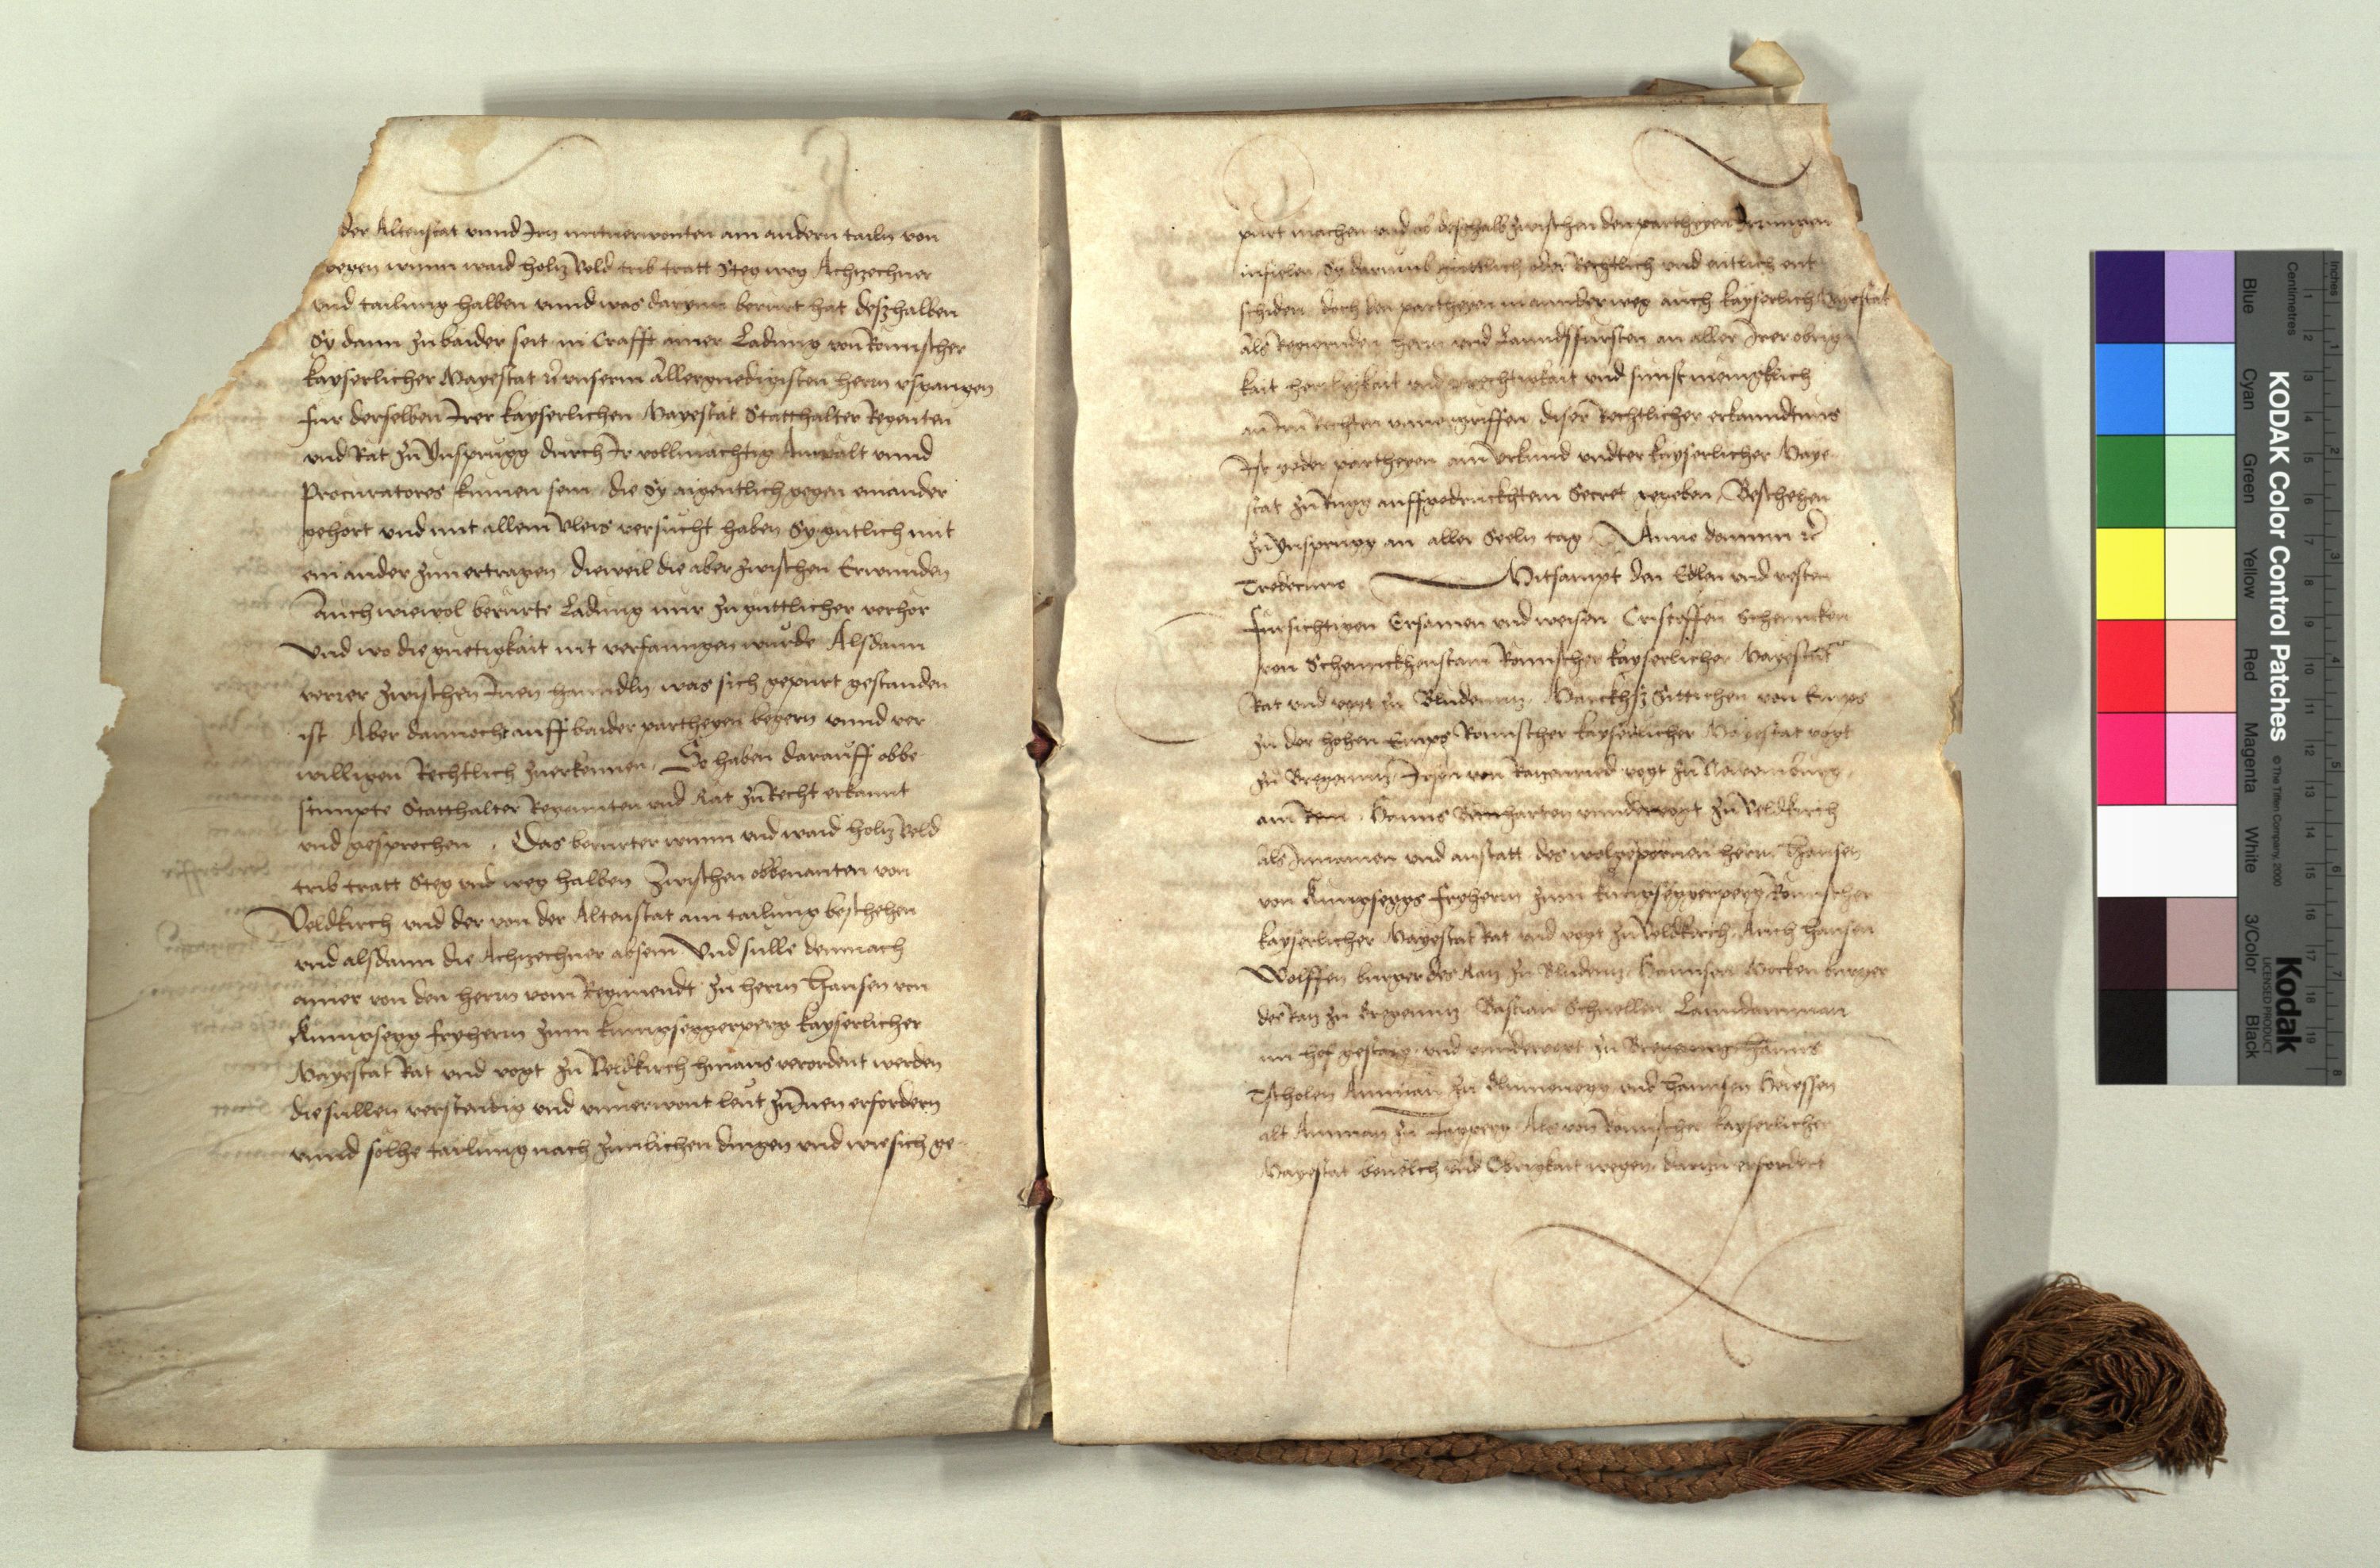 der Altenstat vnnd Irn mitverwonten am andern tailn von
wegen wunn waid holtz Veld trib tratt Steg weg Achtzechner
vnd tailung halben vnnd was darynn berürt hat deszhalben
Sy dann zu baider seit in Crafft ainer Ladung von Römischer
kayserlicher Mayestat vnserm Allergnedigisten herrn vsgangen
fur derselben Irer kayserlichen Mayestat Statthalter Regenten
vnd Rät zu Ynsprugg durch Ir vollmächtig Anwält vnnd
Procuratores kumen sein, die Sy aigentlich gegen einander
gehört vnd mit allem Vleis versucht haben Sy gütlich mit
einander zuuertragen, dieweil die aber zwischen Erwunden
Auch wiewol berürte Ladung nur zu güttlicher verhör
vnd wo die guetigkait nit verfanngen wurde Alsdann
verrer zwischen Inen hanndln was sich gepurt gestanden
ist Aber dannocht auff baider partheyen begern vnnd ver
willigen Rechtlich zuerkennen. So haben darauff obbe
stimpte Statthalter Regennten vnd Rät zu Recht erkannt
vnd gesprochen. Das berürter wunn vnd waid holtz Veld
trib tratt Steg vnd weg halben zwischen obbenanten von
Veldkirch vnd der von der Altenstat ain tailung beschehen
vnd alsdann die Achtzechner absein Vnd sulle demnach
ainer von den herrn vom Regimendt zu herrn Hansen von
Kungsegg fryherrn zum kungseggerperg kayserlicher
Mayestat Rat vnd vogt zu Veldkirch hinaus verordent werden
die sullen verstendig vnd vnuerwont leut zu Inen erfordern
vnnd solhe tailung nach zimlichen dingen vnd wie sich ge-
purt machen vnd ob deszhalb zwischen den partheyen Irrungen
infielen Sy darumb guttlich oder Rechtlich vnd entlich ent
schiden doch den partheyen in annder weg auch kayserlich Mayestat
als Regierenden herrn vnd Lanndsfürsten an aller Irer obrig
kait herrlikait vnd gerechtigkait vnd sunst menigklich
an Irn Rechten vnuergriffen diser Rechtlicher erkanndtnus
Ist yeder partheyen ain Urkund vndter kayserlicher Maye
stat zu Rugg auffgedruckhtem Secret gegeben, Beschehen
zu Ynsprugg an aller Seeln tag Anno domini etc
Tredecimo Mitsampt den Edlen vnd vesten
Fursichtigen Ersamen vnd weisen Cristoffen Schenncken
von Schennckhenstain Römischer kayserlicher Mayestat
Rat vnd vogt zu Bludenntz, Marckhsz Sittichen von Emps
zu der hohen Emps Römischer kayserlicher Mayestat vogt
zu Bregenntz, von Ratzenried vogt zu
am Hanns vnndervogt zu Veldkirch
als Innamen vnd anstatt des wolgepornen herrn Hansen
von Kungseggs fryherrn zum kungseggerperg Römischer
kayserlicher Mayestat Rat vnd vogt zu Veldkirch, Auch Hansen
Wolffen burger des Ratz zu Bludentz, Hannsen Mocken burger
des Ratz zu Bregenntz Bastian Schnellen Lanndamman
im hof vnd vnndervogt zu Hanns
Tscholen Amman zu Blumenegg vnd Hannsen
alt Amman zu Jagperg Als von Römischer kayserlicher
Mayestat beuelch vnd Obrigkait wegen, darzu erfordert
KODAK Color Control Patches © The Tiffen Company, 2000
Kodak
LICENSED PRODUCT
Blue Cyan Green Yellow Red Magenta White 3/Color Black
Centimetres Inches
1 2 3 4 5 6 7 8 9 10 11 12 13 14 15 16 17 18 19
1 2 3 4 5 6 7 8